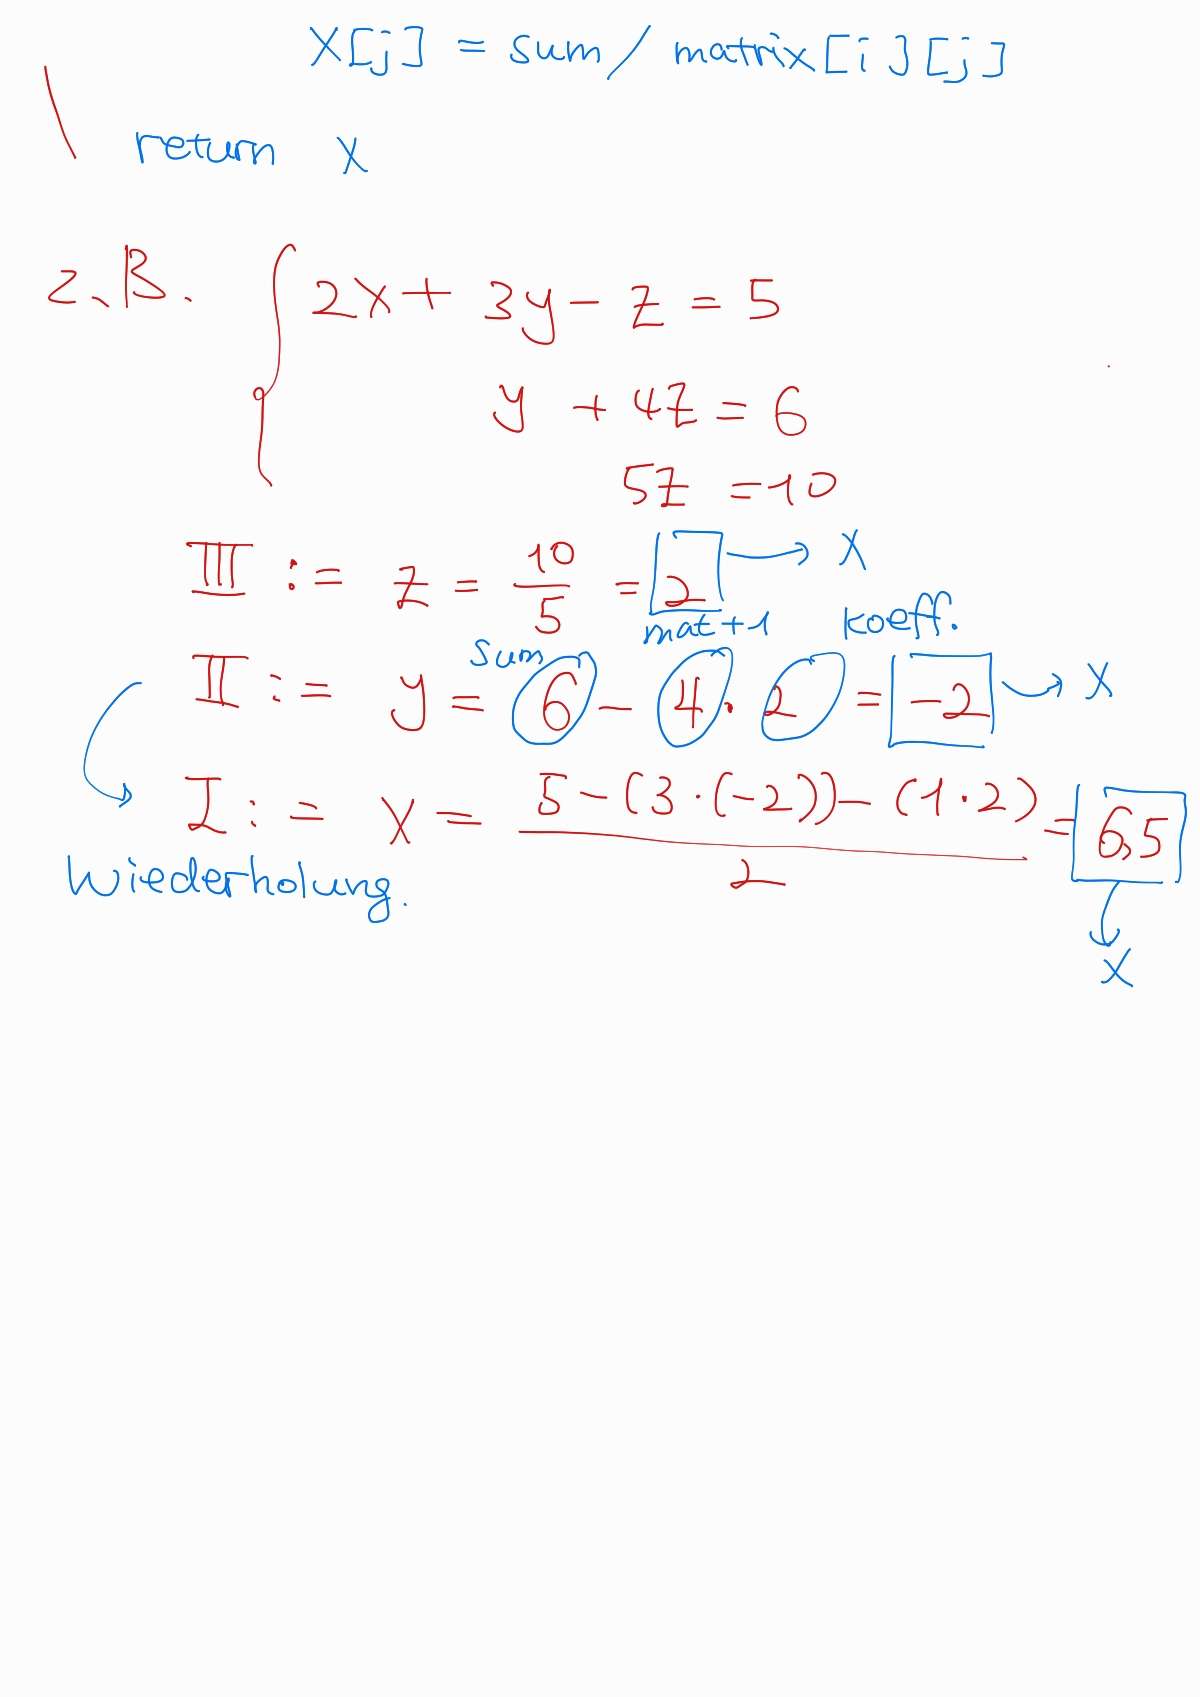 X[j] = sum / matrix[i][j]
return X
z.B. { 2x + 3y - z = 5
y + 4z = 6
5z = 10
III := z = 10/5 = 2 → X
mat+1 koeff.
sum
II := y = 6 - 4 · 2 = -2 → X
I := x = (5 - (3 · (-2)) - (1 · 2))/2 = 6,5
Wiederholung.
X